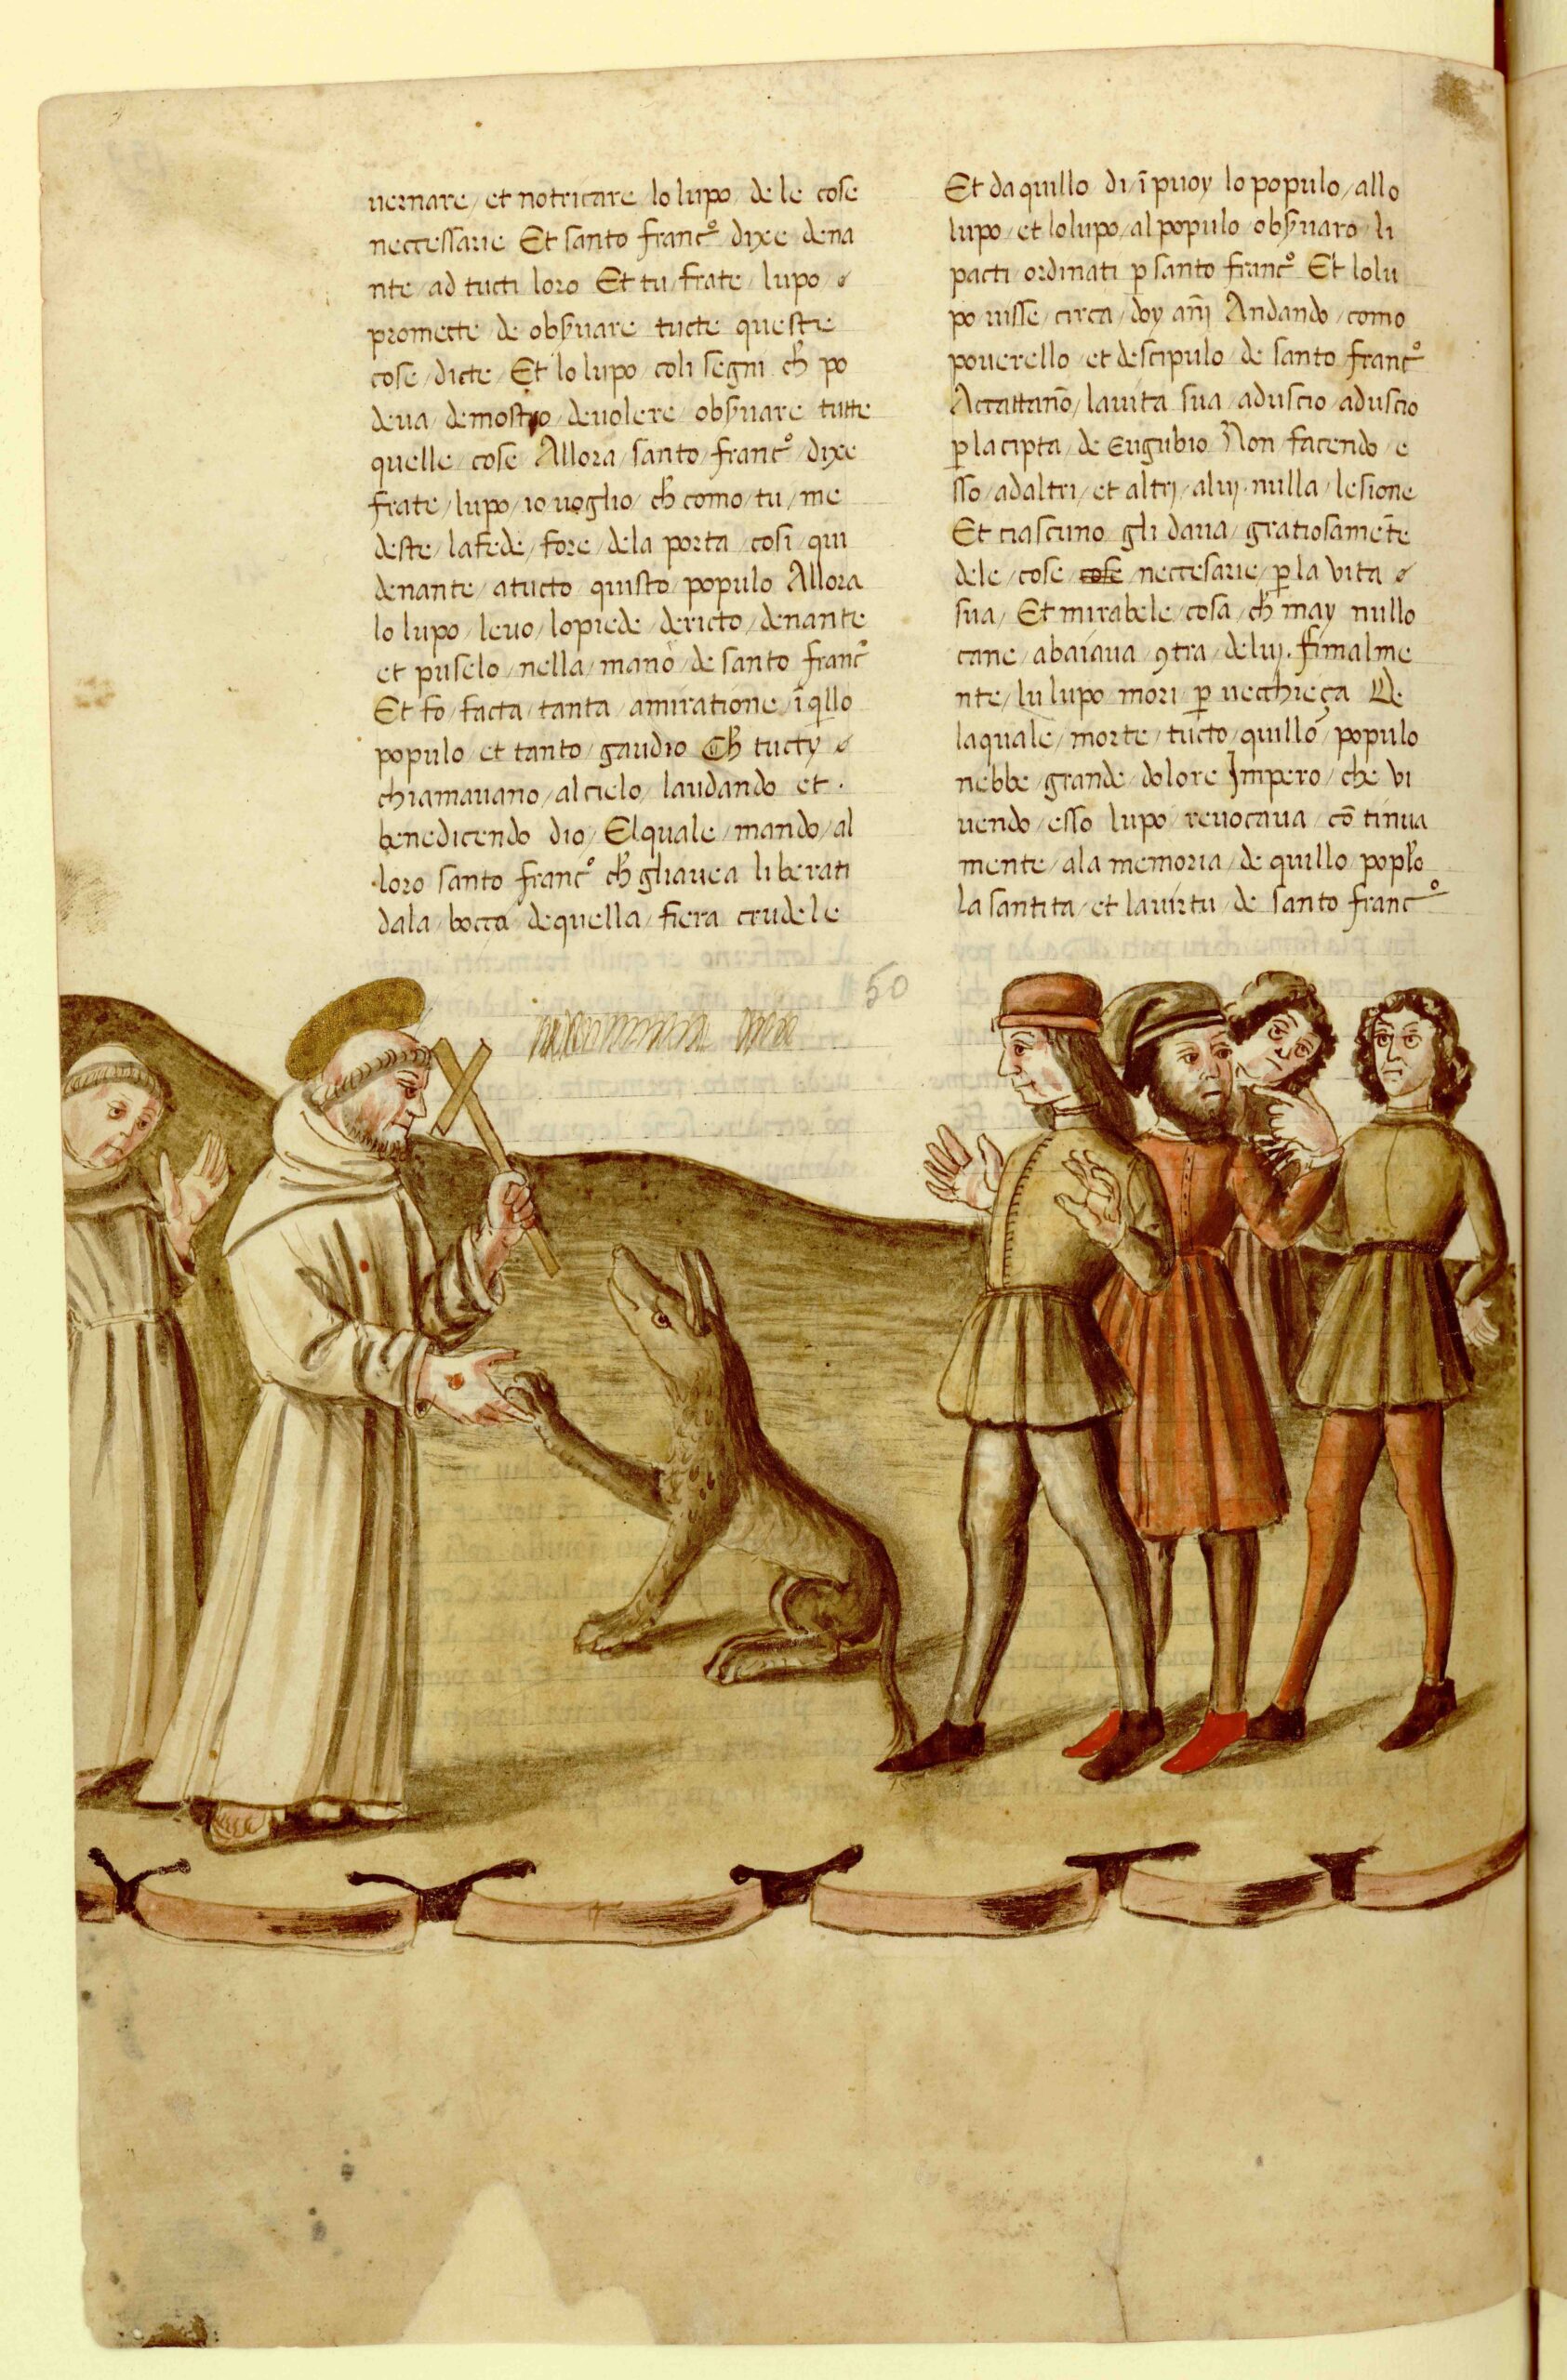 uernare / et notricare / lo lupo / de le cose
neccessarie Et santo franc̊ dixe dena
nte / ad tucti loro Et tu / frate / lupo
promecte de obs̱uare tucte queste
cose / dicte / Et lo lupo / coli segni ch̄ po
deua / demostro / deuolere / obs̱uare tutte
quelle / cose Allora / santo / franc̊ / dixe
frate / lupo / io uoglio / ch̄ como / tu / me
deste / lafede / fore / dela porta / cosi / qui
denante / atucto / quisto / populo Allora
lo lupo / leuo / lopiede / dericto / denante
et puselo / nella / mano / de santo franc̊
Et fo / facta / tanta / amiratione / ī qllo
populo / et tanto / gaudio Ch̄ tucty
chiamauano / alcielo / laudando et ·
benedicendo dio / Elquale / mando / al
loro santo franc̊ ch̄ gliauea liberati
dala / bocca dequella / fiera crudele
Et da quillo di / ī puoy lo populo / allo
lupo / et lolupo / al populo obs̱uaro / li
pacti / ordinati ꝑ santo franc̊ Et lolu
po uisse / circa / doy an̄j Andando / como
pouerello / et descipulo / de santo franc̊
Accattan̄o / lauita sua / aduscio / aduscio
ꝑ lacipta / de Eugubio Non facendo / e
sso / adaltri / et altrj / aluj · nulla / lesione
Et ciascuno gli daua / gratiosamēte
dele / cose cose / neccesarie / ꝑ la vita
sua / Et mirabele / cosa / ch̄ may nullo
cane / abaiaua / ꝯtra / deluj · fimalme
nte / lu lupo mori ꝑ uecchieça De
laquale / morte / tucto / quillo / populo
nebbe / grande / dolore Impero / che vi
uendo / esso lupo / reuocaua / cō tinua
mente / ala memoria / de quillo / popłо
la santita / et lauirtu / de santo franc̊
50